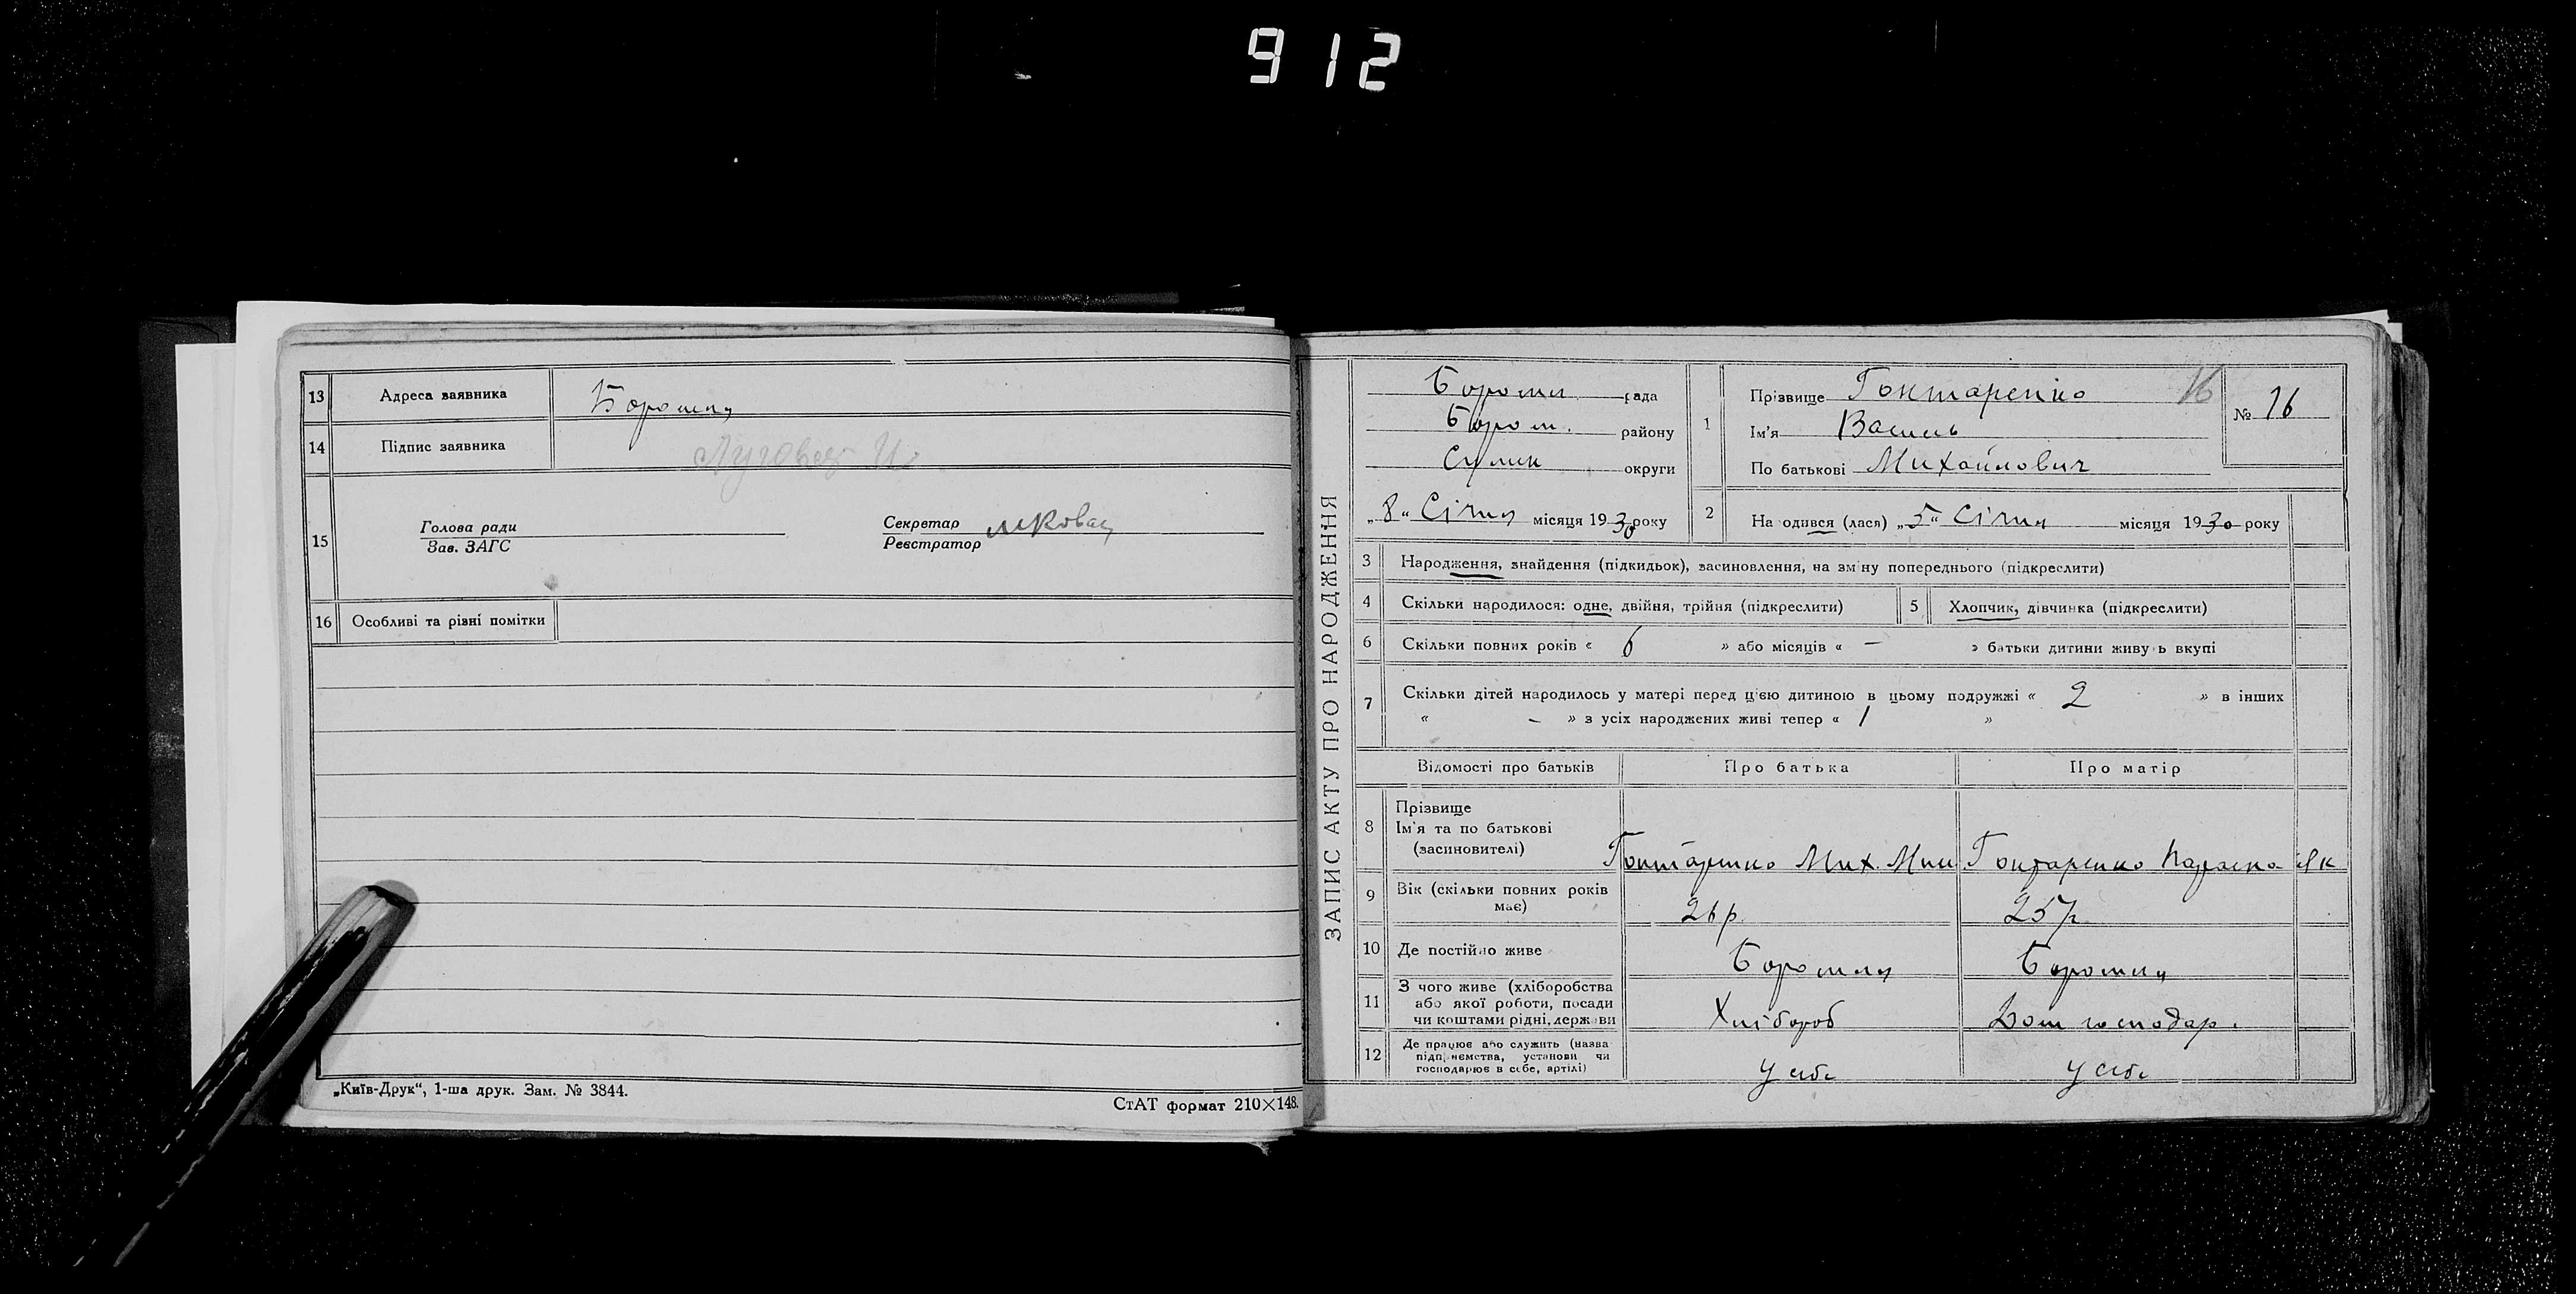 912
13 Адреса заявника Боромля
14 Підпис заявника Луговец И
15
Голова ради
Зав. ЗАГС
Секретар
Реєстратор
16 Особливі та різні помітки
„Київ-Друк“, 1-ша друк. Зам. № 3844.
СтАТ формат 210×148.
ЗАПИС АКТУ ПРО НАРОДЖЕННЯ
Боромл. рада
Боромл. району
Сумск округи
„8“ Січня місяця 1930 року
1 Прізвище Гонтаренко 16
Ім'я Василь
По батькові Михайлович
№ 16
2 Народився (лася) „5“ Січня місяця 1930 року
3 Народження, знайдення (підкидьок), засиновлення, на зміну попереднього (підкреслити)
4 Скільки народилося: одне, двійня, трійня (підкреслити)
5 Хлопчик, дівчинка (підкреслити)
6 Скільки повних років « 6 » або місяців « — » батьки дитини живуть вкупі
7 Скільки дітей народилось у матері перед цією дитиною в цьому подружжі « 2 » в інших
« – » з усіх народжених живі тепер « 1 »
Відомості про батьків Про батька Про матір
8 Прізвище
Ім'я та по батькові
(засиновителі)
Гонтаренко Мих. Гонтаренко Параска Як
9 Вік (скільки повних років
має)
26 р. 25 р.
10 Де постійно живе Боромля Боромля
11 З чого живе (хліборобства
або якої роботи, посади
чи коштами рідні, держави
Хлібороб Дом господар.
12 Де працює або служить (назва
підприємства, установи чи
господарює в себе, артілі)
у себе у себе